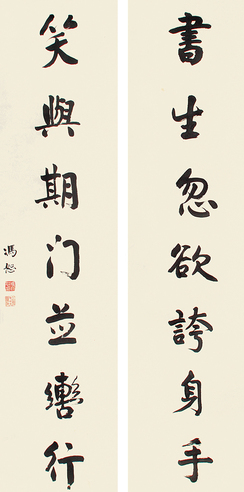 書生忽欲誇身手
笑與期门並轡行
馮恕